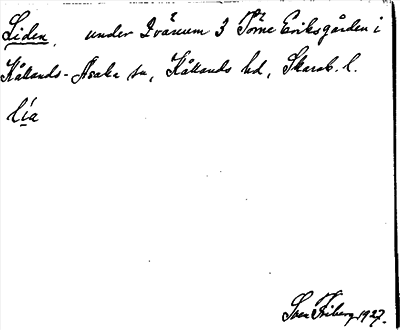 Liden, under Qvänum 3 Torne Eriksgården i
Kållands-Åsaka sn, Kållands hd, Skarab. l.
lía
Sven Friberg 1927.